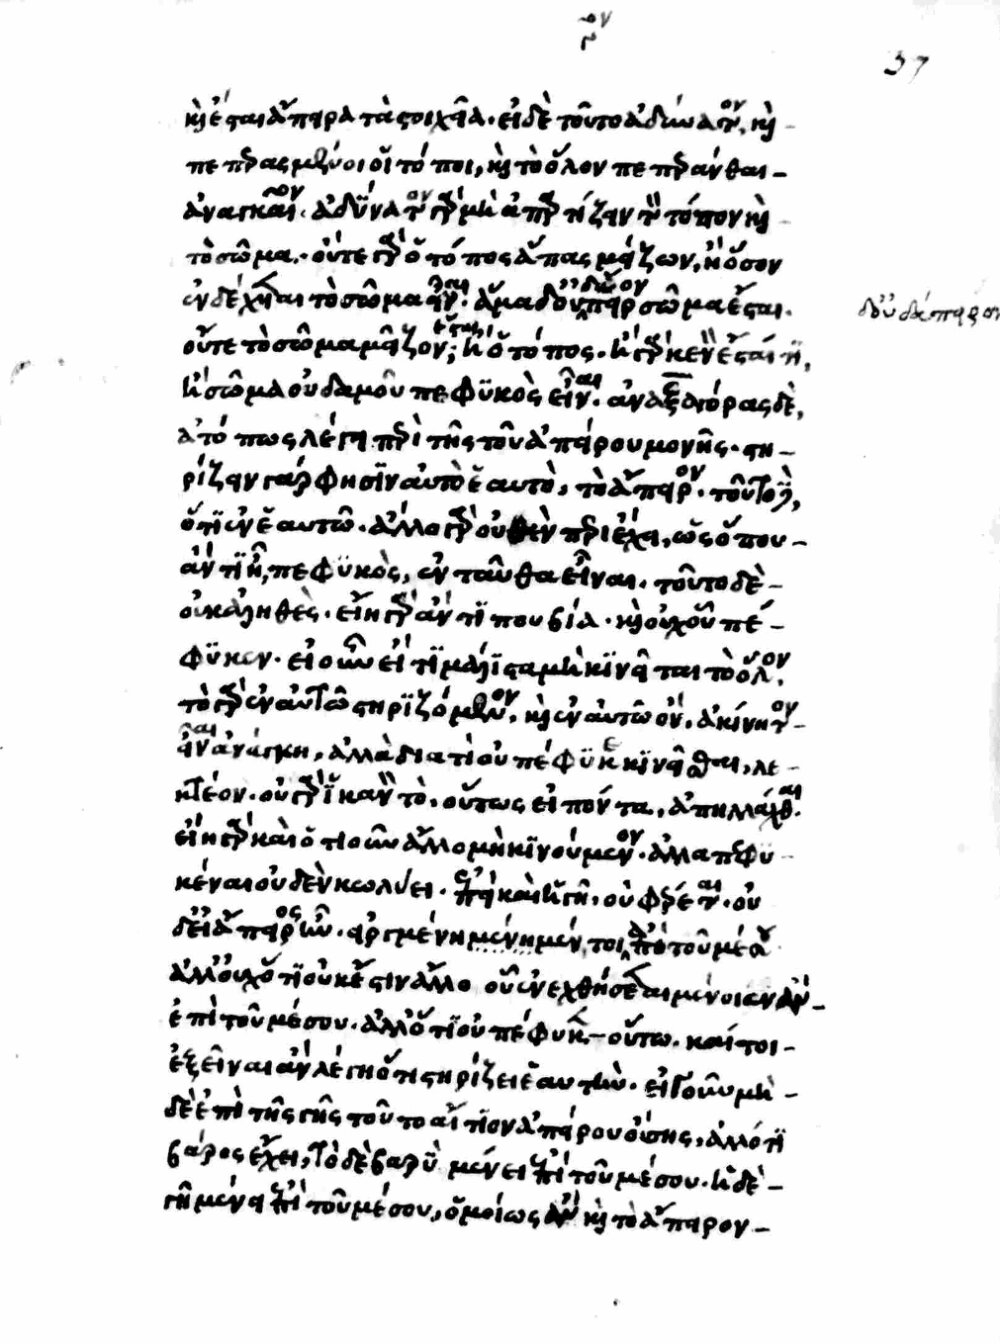 καὶ ἔσται ἄπειρα τὰ στοιχεῖα· εἰ δὲ τοῦτο ἀδύνατον, καὶ –
πεπερασμένοι οἱ τόποι, καὶ τὸ ὅλον πεπεράνθαι –
ἀναγκαῖον· ἀδύνατον γὰρ μὴ ἀπαρτίζειν τὸν τόπον καὶ
τὸ σῶμα· οὔτε γὰρ ὁ τόπος ἅπας μείζων, ἢ ὅσον
ἐνδέχεται τὸ σῶμα εἶναι· ἅμα δ' οὐδ' ἄπειρον σῶμα ἔσται·
οὔτε τὸ σῶμα μεῖζον ἔσται, ἢ ὁ τόπος· ἢ γὰρ κενὸν ἔσται τι,
ἢ σῶμα οὐδαμοῦ πεφυκὸς εἶναι· ἀναξαγόρας δὲ,
ἀτόπως λέγει περὶ τῆς τοῦ ἀπείρου μονῆς· στη –
ρίζειν γάρ φησιν αὐτὸ ἑαυτὸ, τὸ ἄπειρον· τοῦτο δὲ,
ὅτι ἐν ἑαυτῶ· ἄλλο γὰρ οὐθὲν περιέχει, ὡς ὅπου –
ἄν τι ἦ, πεφυκὸς, ἐνταῦθα εἶναι· τοῦτο δὲ –
οὐκ ἀληθές· εἴη γὰρ ἄν τί που βία· καὶ οὐχ οὗ πέ –
φυκεν· εἰ οὖν εἰ τι μάλιστα μὴ κινεῖται τὸ ὅλον,
τὸ γὰρ ἐν αὑτῶ στηριζόμενον, καὶ ἐν αὑτῶ ὂν, ἀκίνητον –
εἶναι ἀνάγκη, ἀλλὰ διατί οὐ πέφυκε κινεῖσθαι, λε –
κτέον· οὐ γὰρ ἱκανὸν τὸ, οὕτως εἰπόντα, ἀπηλλάχθαι·
εἴη γὰρ καὶ ὁτιοῦν ἄλλο μὴ κινούμενον· ἀλλὰ πεφυ –
κέναι οὐδὲν κωλύει· ἐπεὶ καὶ ἡ γῆ, οὐ φέρεται· οὐ
δ' εἰ ἄπειρος ἦν· εἰργμένη μένη μέν τοι, ἀπὸ τοῦ μέσου
ἀλλ' οὐχ ὅτι οὐκ ἔστιν ἄλλο οὗ ἐνεχθήσεται μένοι ἂν ἂν –
ἐπὶ τοῦ μέσου· ἀλλ' ὅτι οὐ πέφυκεν οὕτω· καίτοι –
ἐξεῖναι ἂν λέγη ὅτι στηρίζει ἑαυτήν· εἰ γοῦν μὴ –
δὲ ἐπὶ τῆς γῆς τοῦτο αἴτιον ἀπείρου οὔσης, ἀλλ' ὅτι
βάρος ἔχει, τὸ δὲ βαρὺ μένει ἐπὶ τοῦ μέσου· ἡ δὲ –
γῆ μένει ἐπὶ τοῦ μέσου, ὁμοίως ἂν καὶ τὸ ἄπειρον –
δ' οὐδ' ἄπειρον
37